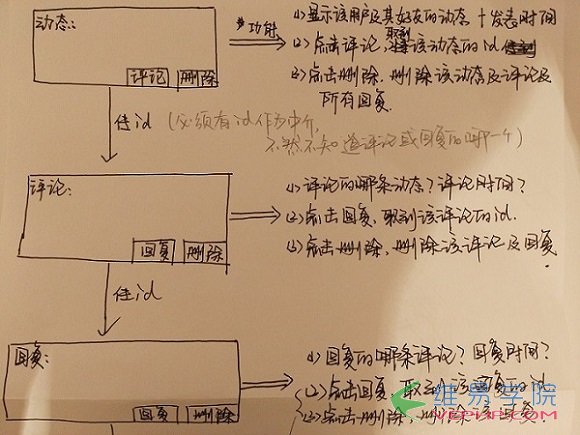 动态:
评论 删除
功能
(1)显示该用户及其好友的动态+发表时间
(2)点击评论,取到该动态的id
(3)点击删除,删除该动态及评论及
所有回复
传id(必须有id作为中介,
不然不知道评论或回复的哪一个)
评论:
回复 删除
(1)评论的哪条动态?评论时间?
(2)点击回复,取到该评论的id.
(3)点击删除,删除该评论及回复
传id
回复:
回复 删除
(1)回复的哪条评论?回复时间?
(2)点击回复,取到该回复的id
(3)点击删除,删除该回复.
维易学院